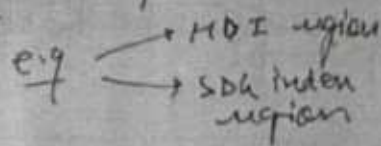 e.g
HDI region
SDG index
region